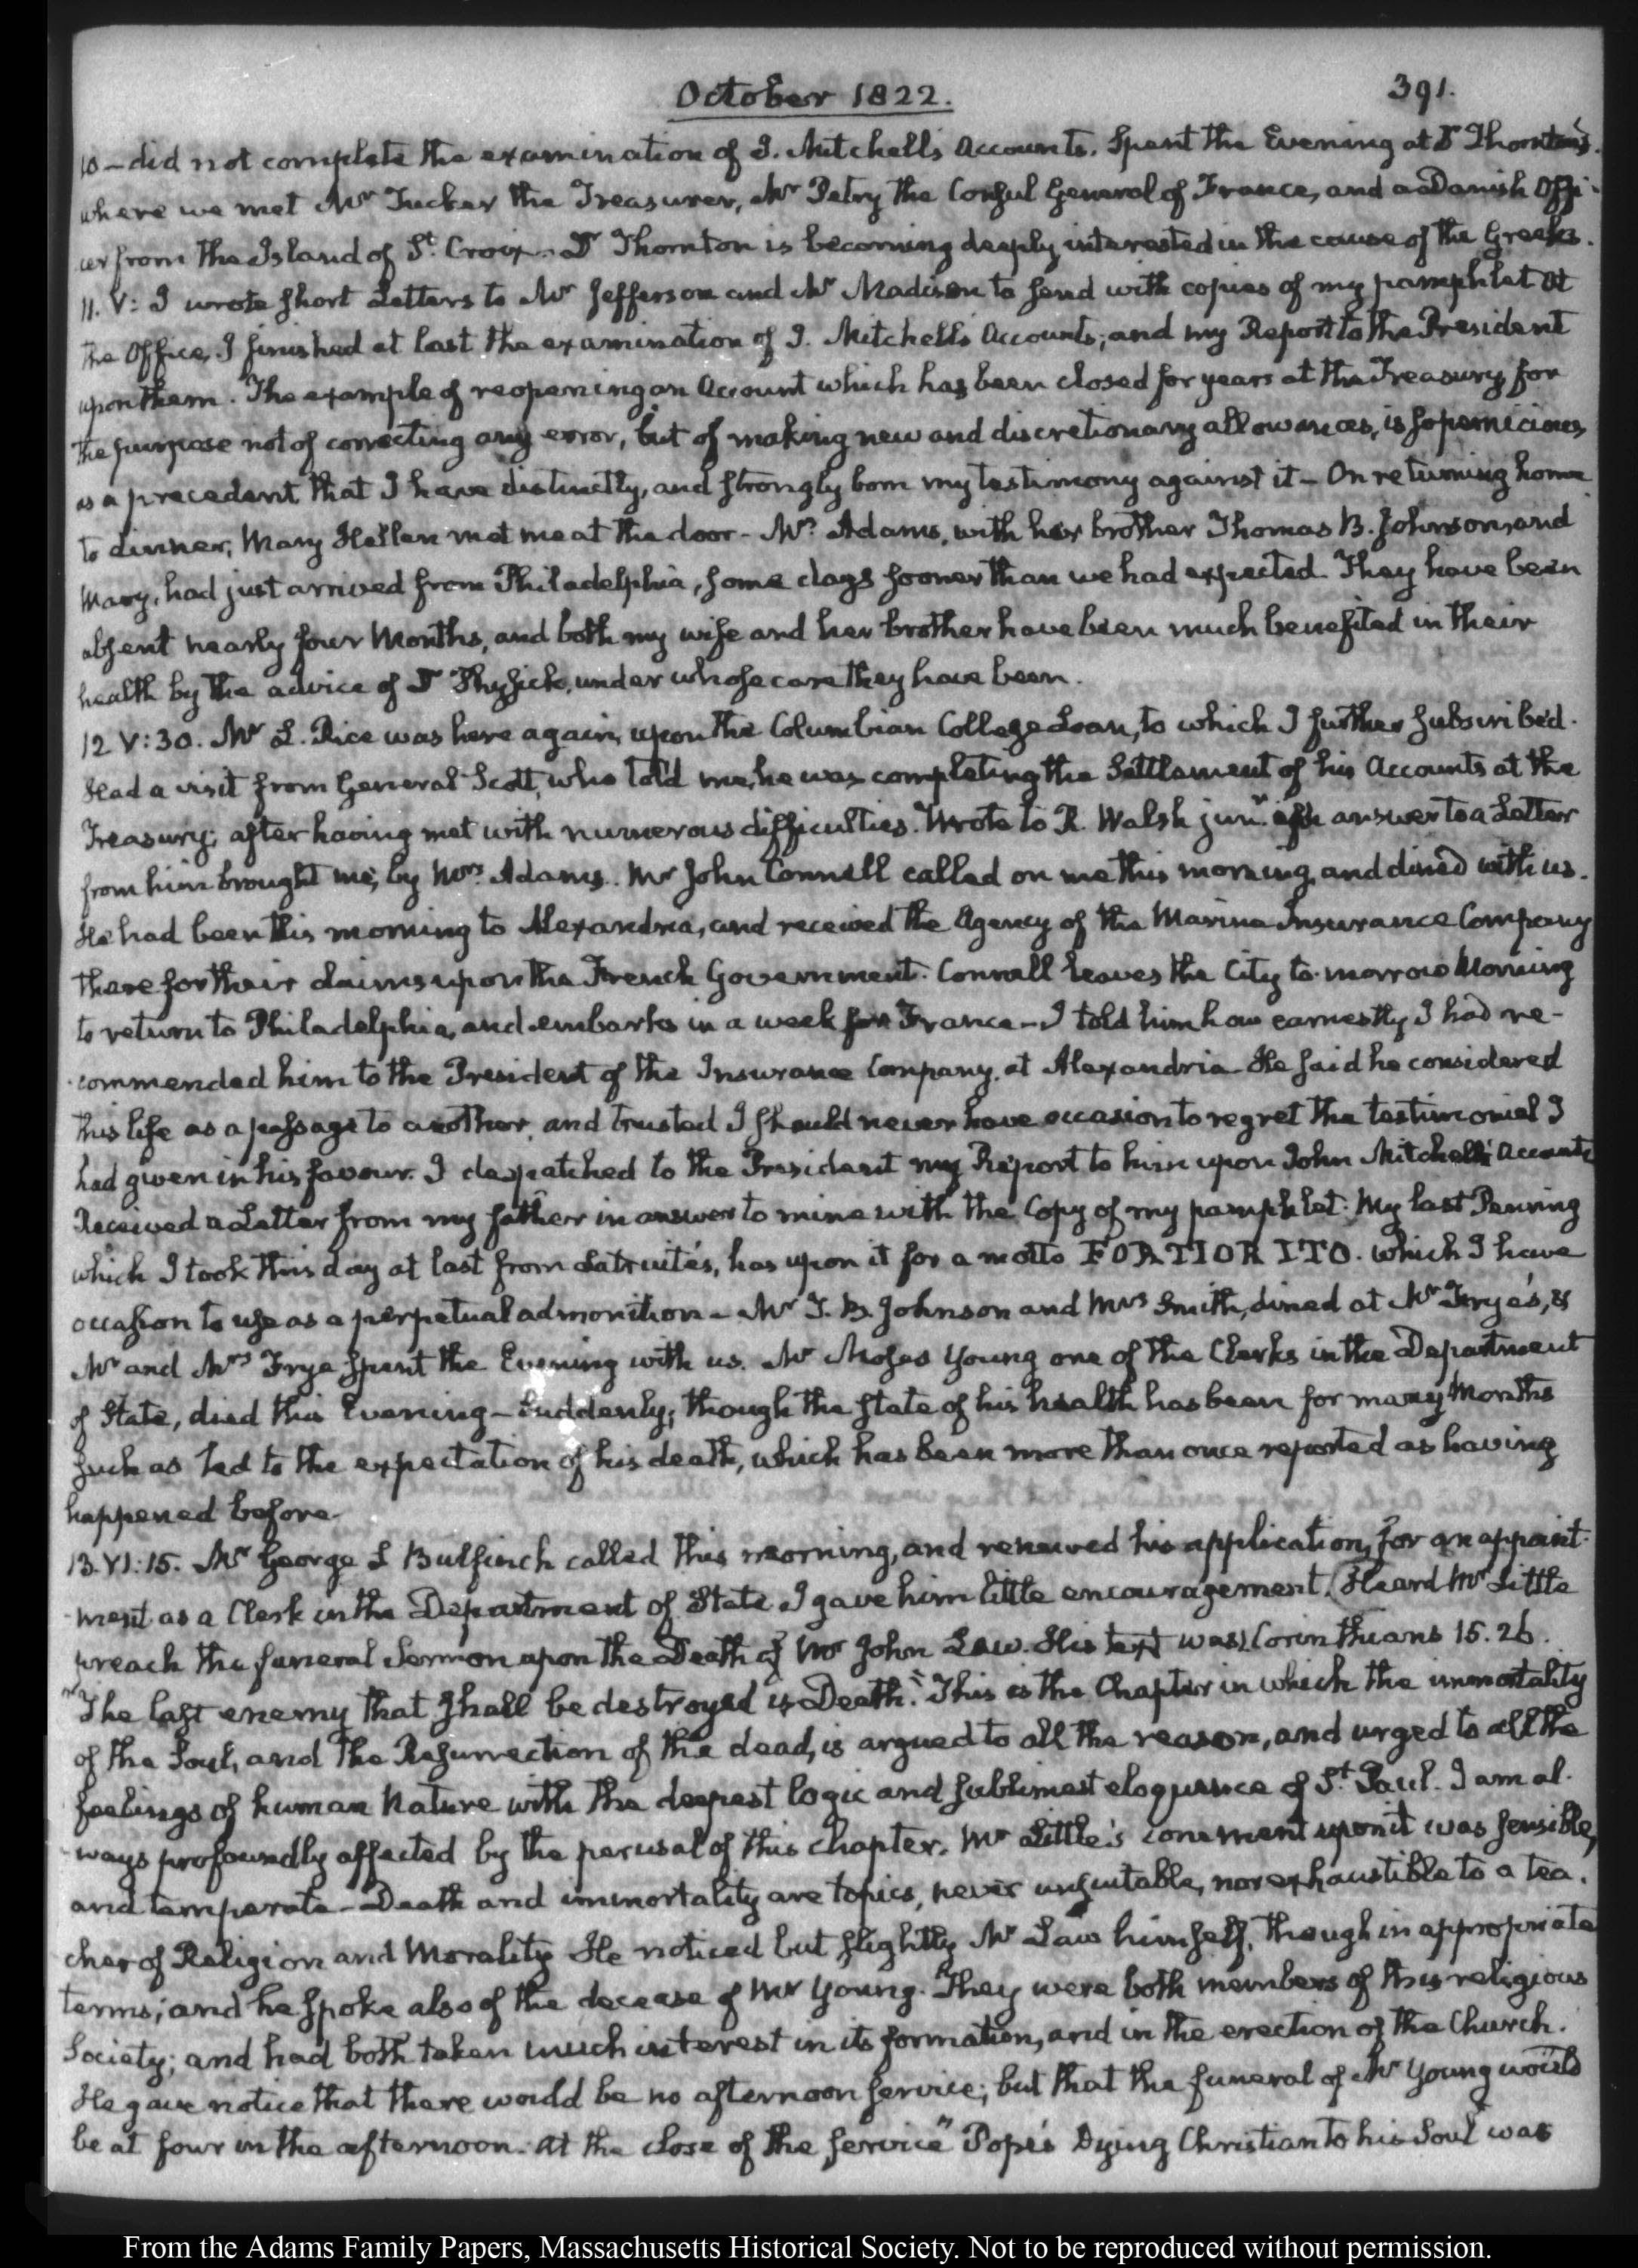 October 1822.
391.
10 — did not complete the examination of J. Mitchell's Accounts. Spent the Evening at Dr Thornton's.
where we met Mr Tucker the Treasurer, Mr Petry the Consul General of France, and a Danish Offi-
cer from the Island of St. Croix. Dr Thornton is becoming deeply interested in the cause of the Greeks.
11. V: I wrote short Letters to Mr Jefferson and Mr Madison to send with copies of my pamphlet At
the Office, I finished at last the examination of J. Mitchell's Accounts; and my Report to the President
upon them. The example of reopening an Account which has been closed for years at the Treasury, for
the purpose not of correcting any error, but of making new and discretionary allowances, is so pernicious
as a precedent that I have distinctly, and strongly born my testimony against it — On returning home
to dinner, Mary Hellen met me at the door — Mrs Adams, with her brother Thomas B. Johnson, and
Mary, had just arrived from Philadelphia, some days sooner than we had expected. They have been
absent nearly four Months, and both my wife and her brother have been much benefited in their
health by the advice of Dr Physick, under whose care they have been.
12 V:30. Mr L. Rice was here again, upon the Columbian College Loan, to which I further subscribed.
Had a visit from General Scott, who told me, he was completing the Settlement of his Accounts at the
Treasury; after having met with numerous difficulties. Wrote to R. Walsh junr. answer to a Letter
from him brought me, by Mrs. Adams. Mr John Connell called on me this morning, and dined with us.
He had been this morning to Alexandria, and received the Agency of the Marine Insurance Company
there for their claims upon the French Government. Connell leaves the City to-morrow Morning
to return to Philadelphia, and embarks in a week for France — I told him how earnestly I had re-
-commended him to the President of the Insurance Company, at Alexandria. He said he considered
this life as a passage to another, and trusted I should never have occasion to regret the testimonial I
had given in his favour. I despatched to the President my Report to him upon John Mitchell's Accounts
Received a Letter from my father in answer to mine with the Copy of my pamphlet. My last
which I took this day at last from has upon it for a motto FORTIOR ITO. which I have
occasion to use as a perpetual admonition — Mr T. B. Johnson and Mrs Smith, dined at Mr Frye's, &
Mr and Mrs Frye spent the Evening with us. Mr Moses Young one of the Clerks in the Department
of State, died this Evening — Suddenly; though the state of his health has been for many Months
such as led to the expectation of his death, which has been more than once reported as having
happened before.
13. VI:15. Mr George Bulfinch called this morning, and renewed his application, for an appoint-
-ment as a Clerk in the Department of State. I gave him little encouragement. Heard Mr Little
preach the funeral Sermon upon the Death of Mr John Law. His text was 1. Corinthians 15. 26.
"The last enemy that shall be destroyed is Death." This is the Chapter in which the immortality
of the Soul, and the Resurrection of the dead, is argued to all the reason, and urged to all the
feelings of human Nature with the deepest logic and sublimest eloquence of St. Paul. I am al-
-ways profoundly affected by the perusal of this chapter. Mr Little's comment upon it was sensible,
and temperate — Death and immortality are topics, never unsuitable, nor exhaustible to a tea-
cher of Religion and Morality. He noticed but slightly Mr Law himself, though in appropriate
terms; and he spoke also of the decease of Mr Young. They were both members of this religious
Society; and had both taken much interest in its formation, and in the erection of the Church.
He gave notice that there would be no afternoon service; but that the funeral of Mr Young would
be at four in the afternoon. At the close of the service "Pope's Dying Christian to his Soul was
From the Adams Family Papers, Massachusetts Historical Society. Not to be reproduced without permission.